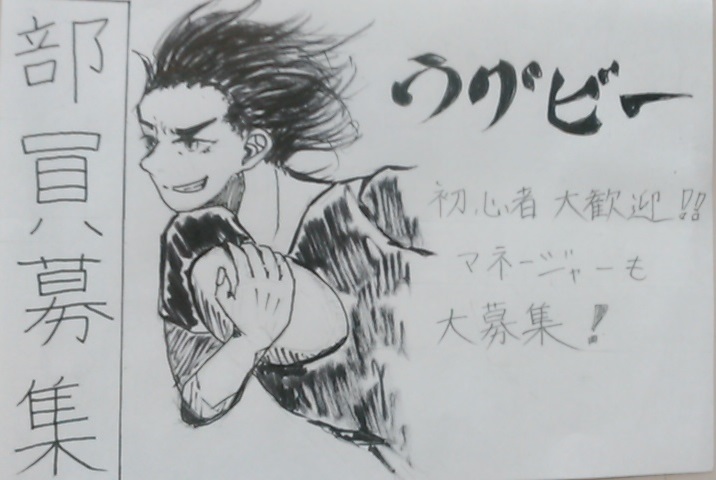 部員募集
ラグビー
初心者大歓迎!!
マネージャーも
大募集!